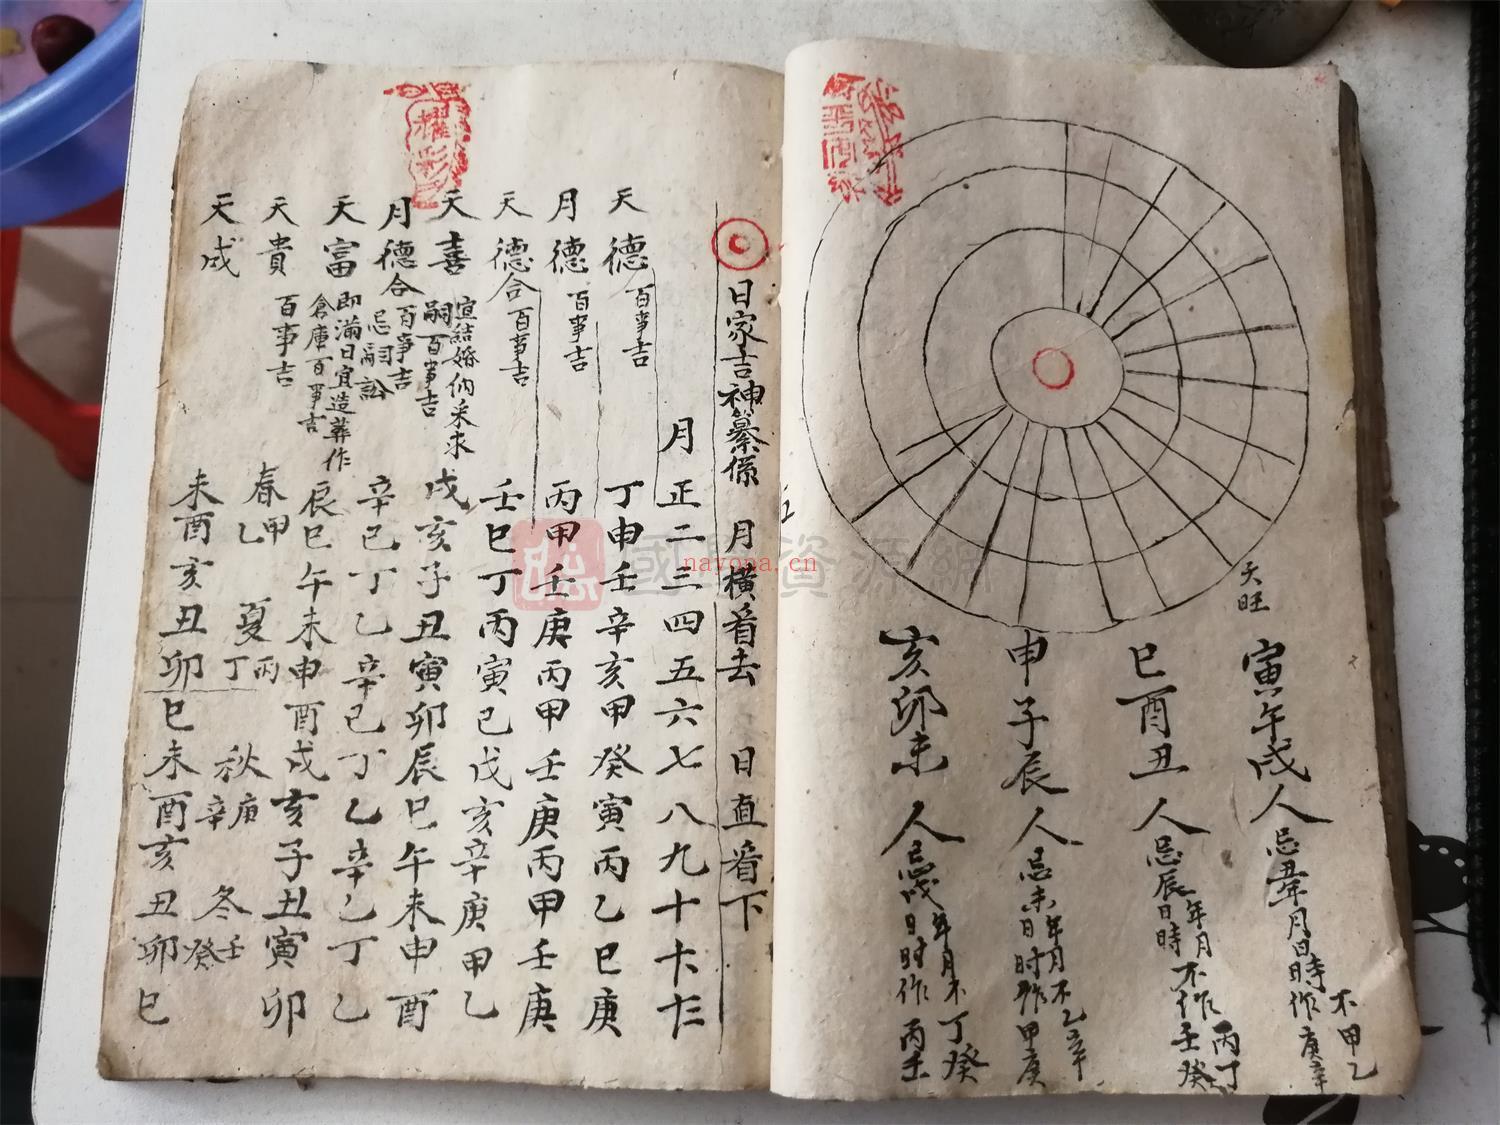 天旺
寅午戌人忌丑年月日時不作甲乙庚辛
巳酉丑人忌辰年月日時不作丙丁壬癸
申子辰人忌未年月日时不作乙辛甲庚
亥卯未人忌戌年月日时不作丁癸丙壬
日家吉神纂係 月橫看去 日直看下
月正二三四五六七八九十十一十二
天德百事吉 丁申壬辛亥甲癸寅丙乙巳庚
月德百事吉 丙甲壬庚丙甲壬庚丙甲壬庚
天德合百事吉 壬巳丁丙寅己戊亥辛庚甲乙
天喜宜結婚納采求嗣百事吉 戌亥子丑寅卯辰巳午未申酉
月德合百事吉忌詞訟 辛己丁乙辛己丁乙辛己丁乙
天富即滿日宜造葬作倉庫百事吉 辰巳午未申酉戌亥子丑寅卯
天貴百事吉 春甲乙 夏丙丁 秋庚辛 冬壬癸
天成 未酉亥丑卯巳未酉亥丑卯巳
耀彩
nayona.cn
國學資源網